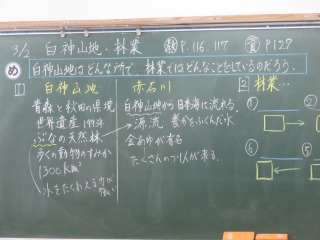 3/2 白神山地・林業 教 P.116、117 資 P127
め 白神山地はどんな所で、林業ではどんなことをしているのだろう。
1 白神山地
青森と秋田の県境
世界遺産 1993年
ぶなの天然林
多くの動物のすみか
1300km²
水をたくわえる力が強い
赤石川
白神山地から日本海に流れる
源流 養分をふくんだ水
金あゆが有名
たくさんのつり人が来る。
2 林業…
① ②
⑤ ⑥